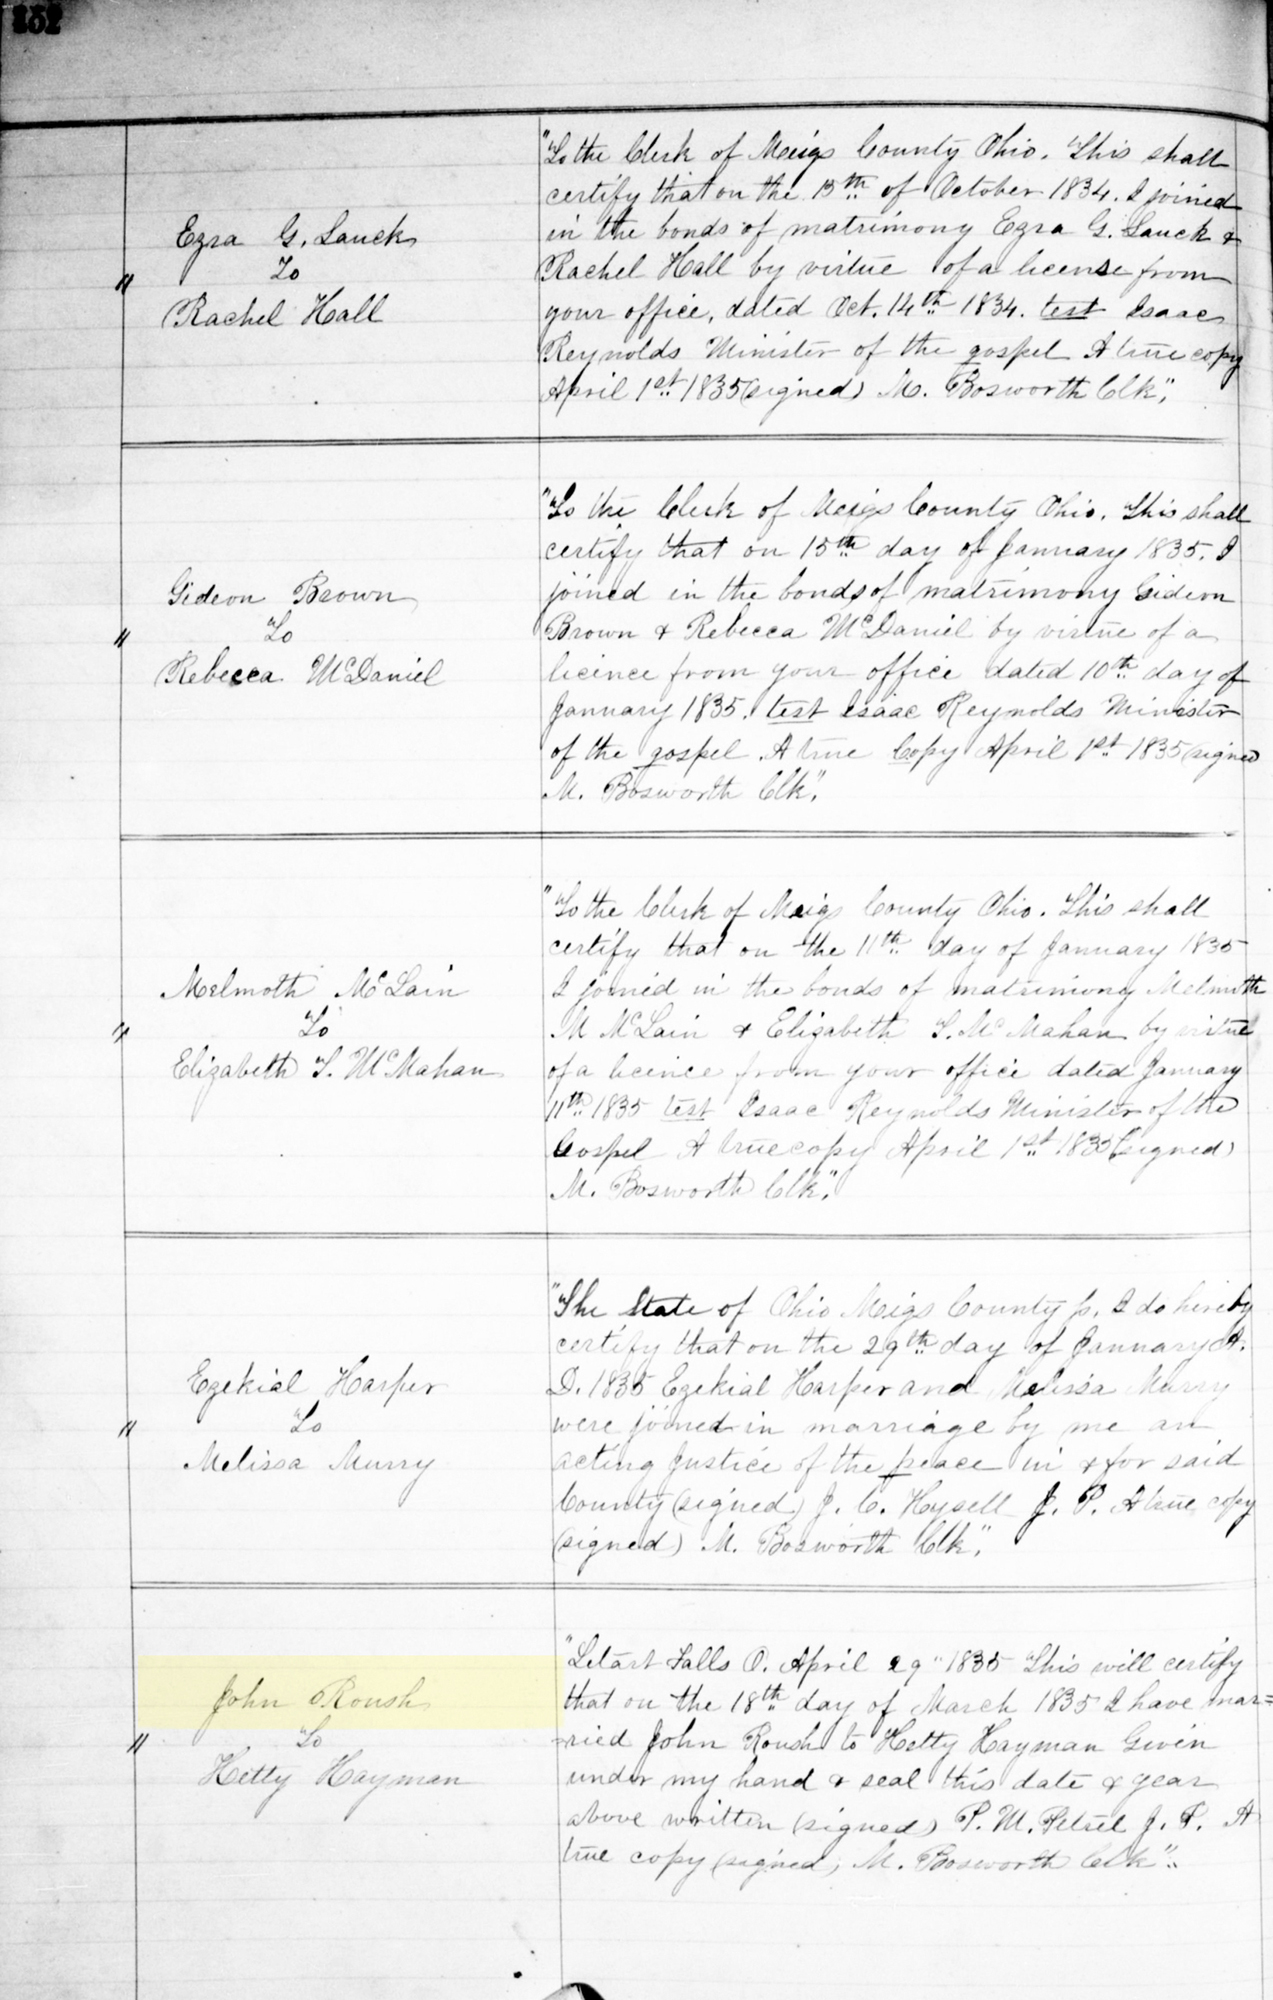 252
Ezra G. Lauck
To
"
Rachel Hall
"To the Clerk of Meigs County Ohio. This shall
certify that on the 15th of October 1834. I joined
in the bonds of matrimony Ezra G. Lauck &
Rachel Hall by virtue of a license from
your office, dated Oct. 14th 1834. test Isaac
Reynolds Minister of the gospel A true copy
April 1st 1835 (signed) M. Bosworth Clk".
Gideon Brown
To
"
Rebecca McDaniel
"To the Clerk of Meigs County Ohio. This shall
certify that on 15th day of January 1835. I
joined in the bonds of matrimony Gideon
Brown & Rebecca McDaniel by virtue of a
licence from your office dated 10th day of
January 1835. test Isaac Reynolds Minister
of the gospel. A true Copy April 1st 1835 (signed
M. Bosworth Clk".
Melmoth McLain
To
"
Elizabeth S. McMahan
"To the Clerk of Meigs County Ohio. This shall
certify that on the 11th day of January 1835
I joined in the bonds of matrimony Melmoth
M McLain & Elizabeth S. McMahan by virtue
of a licence from your office dated January
11th 1835 test Isaac Reynolds Minister of the
Gospel A true copy April 1st 1835 (signed)
M. Bosworth Clk".
Ezekial Harper
To
"
Melissa Murry
"The State of Ohio Meigs County ss. I do hereby
certify that on the 29th day of January A.
D. 1835 Ezekial Harper and Melissa Murry
were joined in marriage by me an
acting Justice of the peace in & for said
County (signed) J. C. Hysell J. P. A true copy
(signed) M. Bosworth Clk".
John Roush
To
"
Hetty Hayman
"Letart Falls O. April 29" 1835 This will certify
that on the 18th day of March 1835 I have mar=
=ried John Roush to Hetty Hayman Given
under my hand & seal this date & year
above written (signed) P. M. Petrel J. P. A
true copy (signed) M. Bosworth Clk".